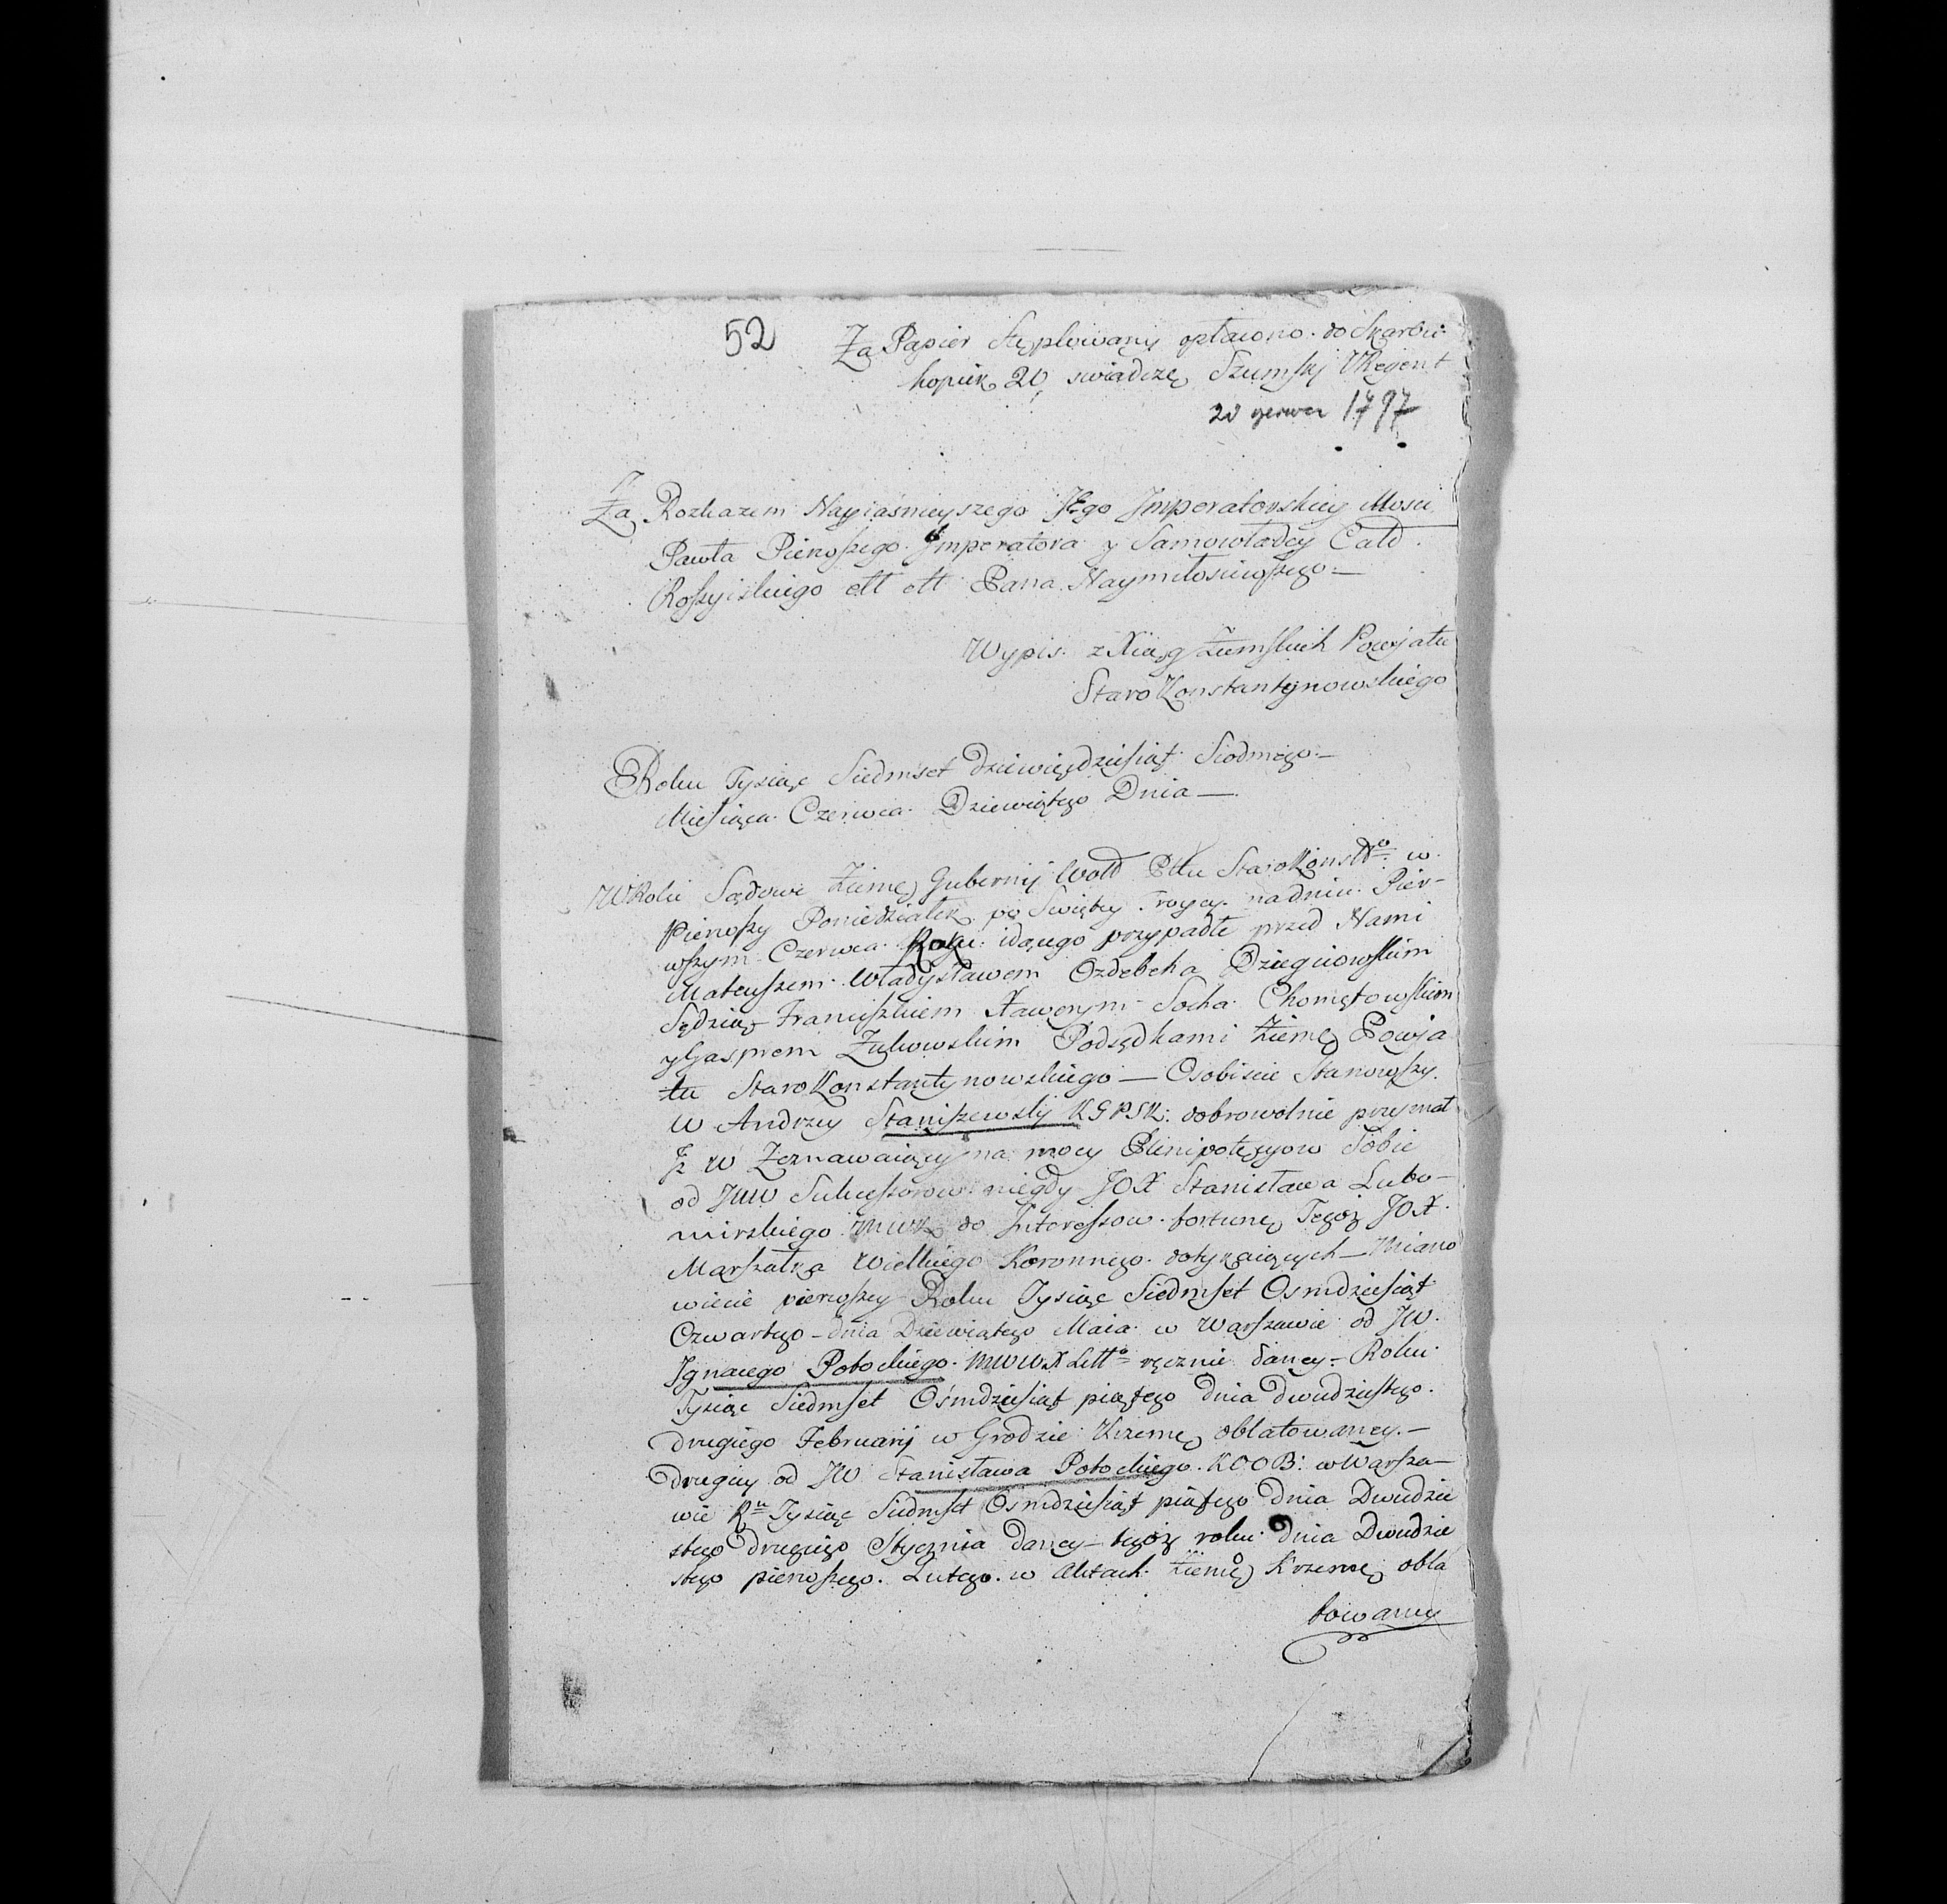 52
Za Papier Stęplowany opłacono do Skarbu
kopiek 20 swiadczę Szumski VRegent
20 czerwca 1797
Za Rozkazem Nayiaśnieyszego Jego Imperatorskiey Mosci
Pawła Pierwszego Imperatora y Samowładcy Cało
Rossyiskiego ett ett Pana Naymiłosciwszego —
Wypis z Xiąg Ziemskich Powjatu
StaroKonstantynowskiego
Roku Tysiąc Siedmset dziewięcdziesiąt Siodmego —
Miesiąca Czerwca Dziewiątego Dnia —
W Roku Sądowe Ziemę Gubernij Woł Pttu StaroKonstto w
Pierwszy Poniedziałek po Swiętey Troycy na dniu Pier-
wszym Czerwca Roku idącego przypadłe przed Nami
Mateuszem Władysławem Ozdebcha Dzięgiowskim
Sędzią Franciszkiem Xawerym Socha Chomętowskim
y Gasprem Żukowskim Podsędkami Ziemę Powja
tu StaroKonstantynowskiego — Osobiscie Stanowszy
W Andrzey Staniszewsky KGPSK: dobrowolnie przyznał
Jz W Zeznawaiący na mocy Plenipotęcyow Sobie
od JWW Sukcessorow niegdy JOX Stanisława Lubo-
mirskiego MWK do Interessow fortunę Tegoż JOX
Marszałka Wielkiego Koronnego dotykaiących — Miano
wicie pierwszey Roku Tysiąc Siedmset Osmdziesiąt
Czwartego — dnia Dziewiątego Maia w Warszawie od JW.
Ignacego Potockiego MWWX Litto ręcznie daney — Roku
Tysiąc Siedmset Ośmdziesiąt piątego dnia dwudziestego
drugiego Februarij w Grodzie Krzemę oblatowaney. —
drugiey od JW Stanisława Potockiego KOOB: w Warsza—
wie Ru Tysiąc Siedmset Osmdziesiąt piątego dnia Dwudzie
stego drugiego Stycznia daney — tegoż roku dnia Dwudzie
stego pierwszego Lutego w Aktach Ziemę Krzemę obla
towaney